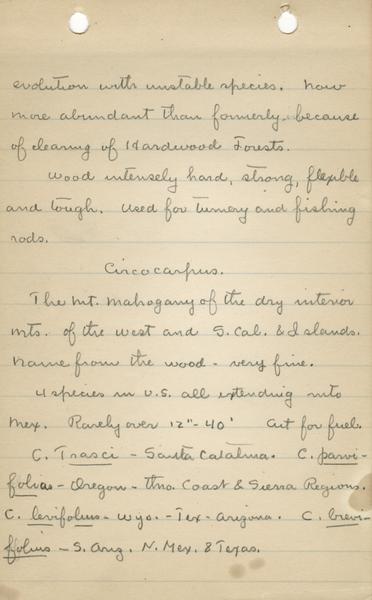 evolution with unstable species. Now
more abundant than formerly, because
of clearing of Hardwood Forests.
Wood intensely hard, strong, flexible
and tough. Used for turnery and fishing
rods.
Circocarpus.
The Mt. Mahogany of the dry interior
mts. of the west and S. Cal. & Islands.
Name from the wood - very fine.
4 species in U.S. all extending into
Mex. Rarely over 12"-40' Cut for fuel.
C. Trasci - Santa Catalina. C. parvi-
folias - Oregon - thro. Coast & Sierra Regions.
C. levifolius - Wyo. - Tex - Arizona. C. brevi-
folius - S. Ariz. N. Mex. & Texas.